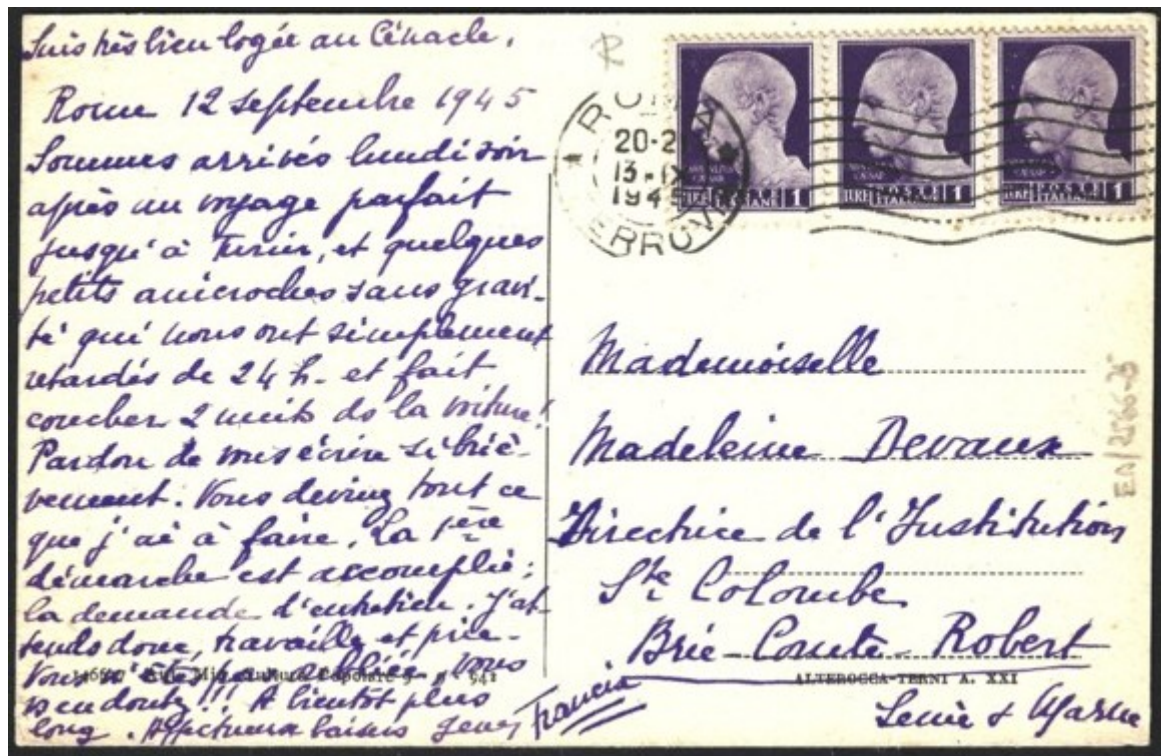 Suis très bien logée au Cénacle.
Rome 12 septembre 1945
Sommes arrivés lundi soir
après un voyage parfait
jusqu'à Turin, et quelques
petits anicroches sans gravi-
té qui nous ont simplement
retardés de 24 h. et fait
coucher 2 nuits ds la voiture!
Pardon de vous écrire si briè-
vement. Vous devinez tout ce
que j'ai à faire. La 1ère
démarche est accomplie:
la demande d'entretien. J'at-
tends donc, travaille et prie.
Vous n'êtes pas oubliée, vous
vs en doutez!!! A bientôt plus
long. Affectueux baisers
Francia
R
ROMA FERROVIA
20-2
13-IX
1945
LIRE ITALIANE 1
LIRE ITALIANE 1
LIRE ITALIANE 1
Mademoiselle
Madeleine Devaux
Directrice de l'Institution
Ste Colombe
Brie-Comte-Robert
ALTEROCCA-TERNI A. XXI
Seine & Marne